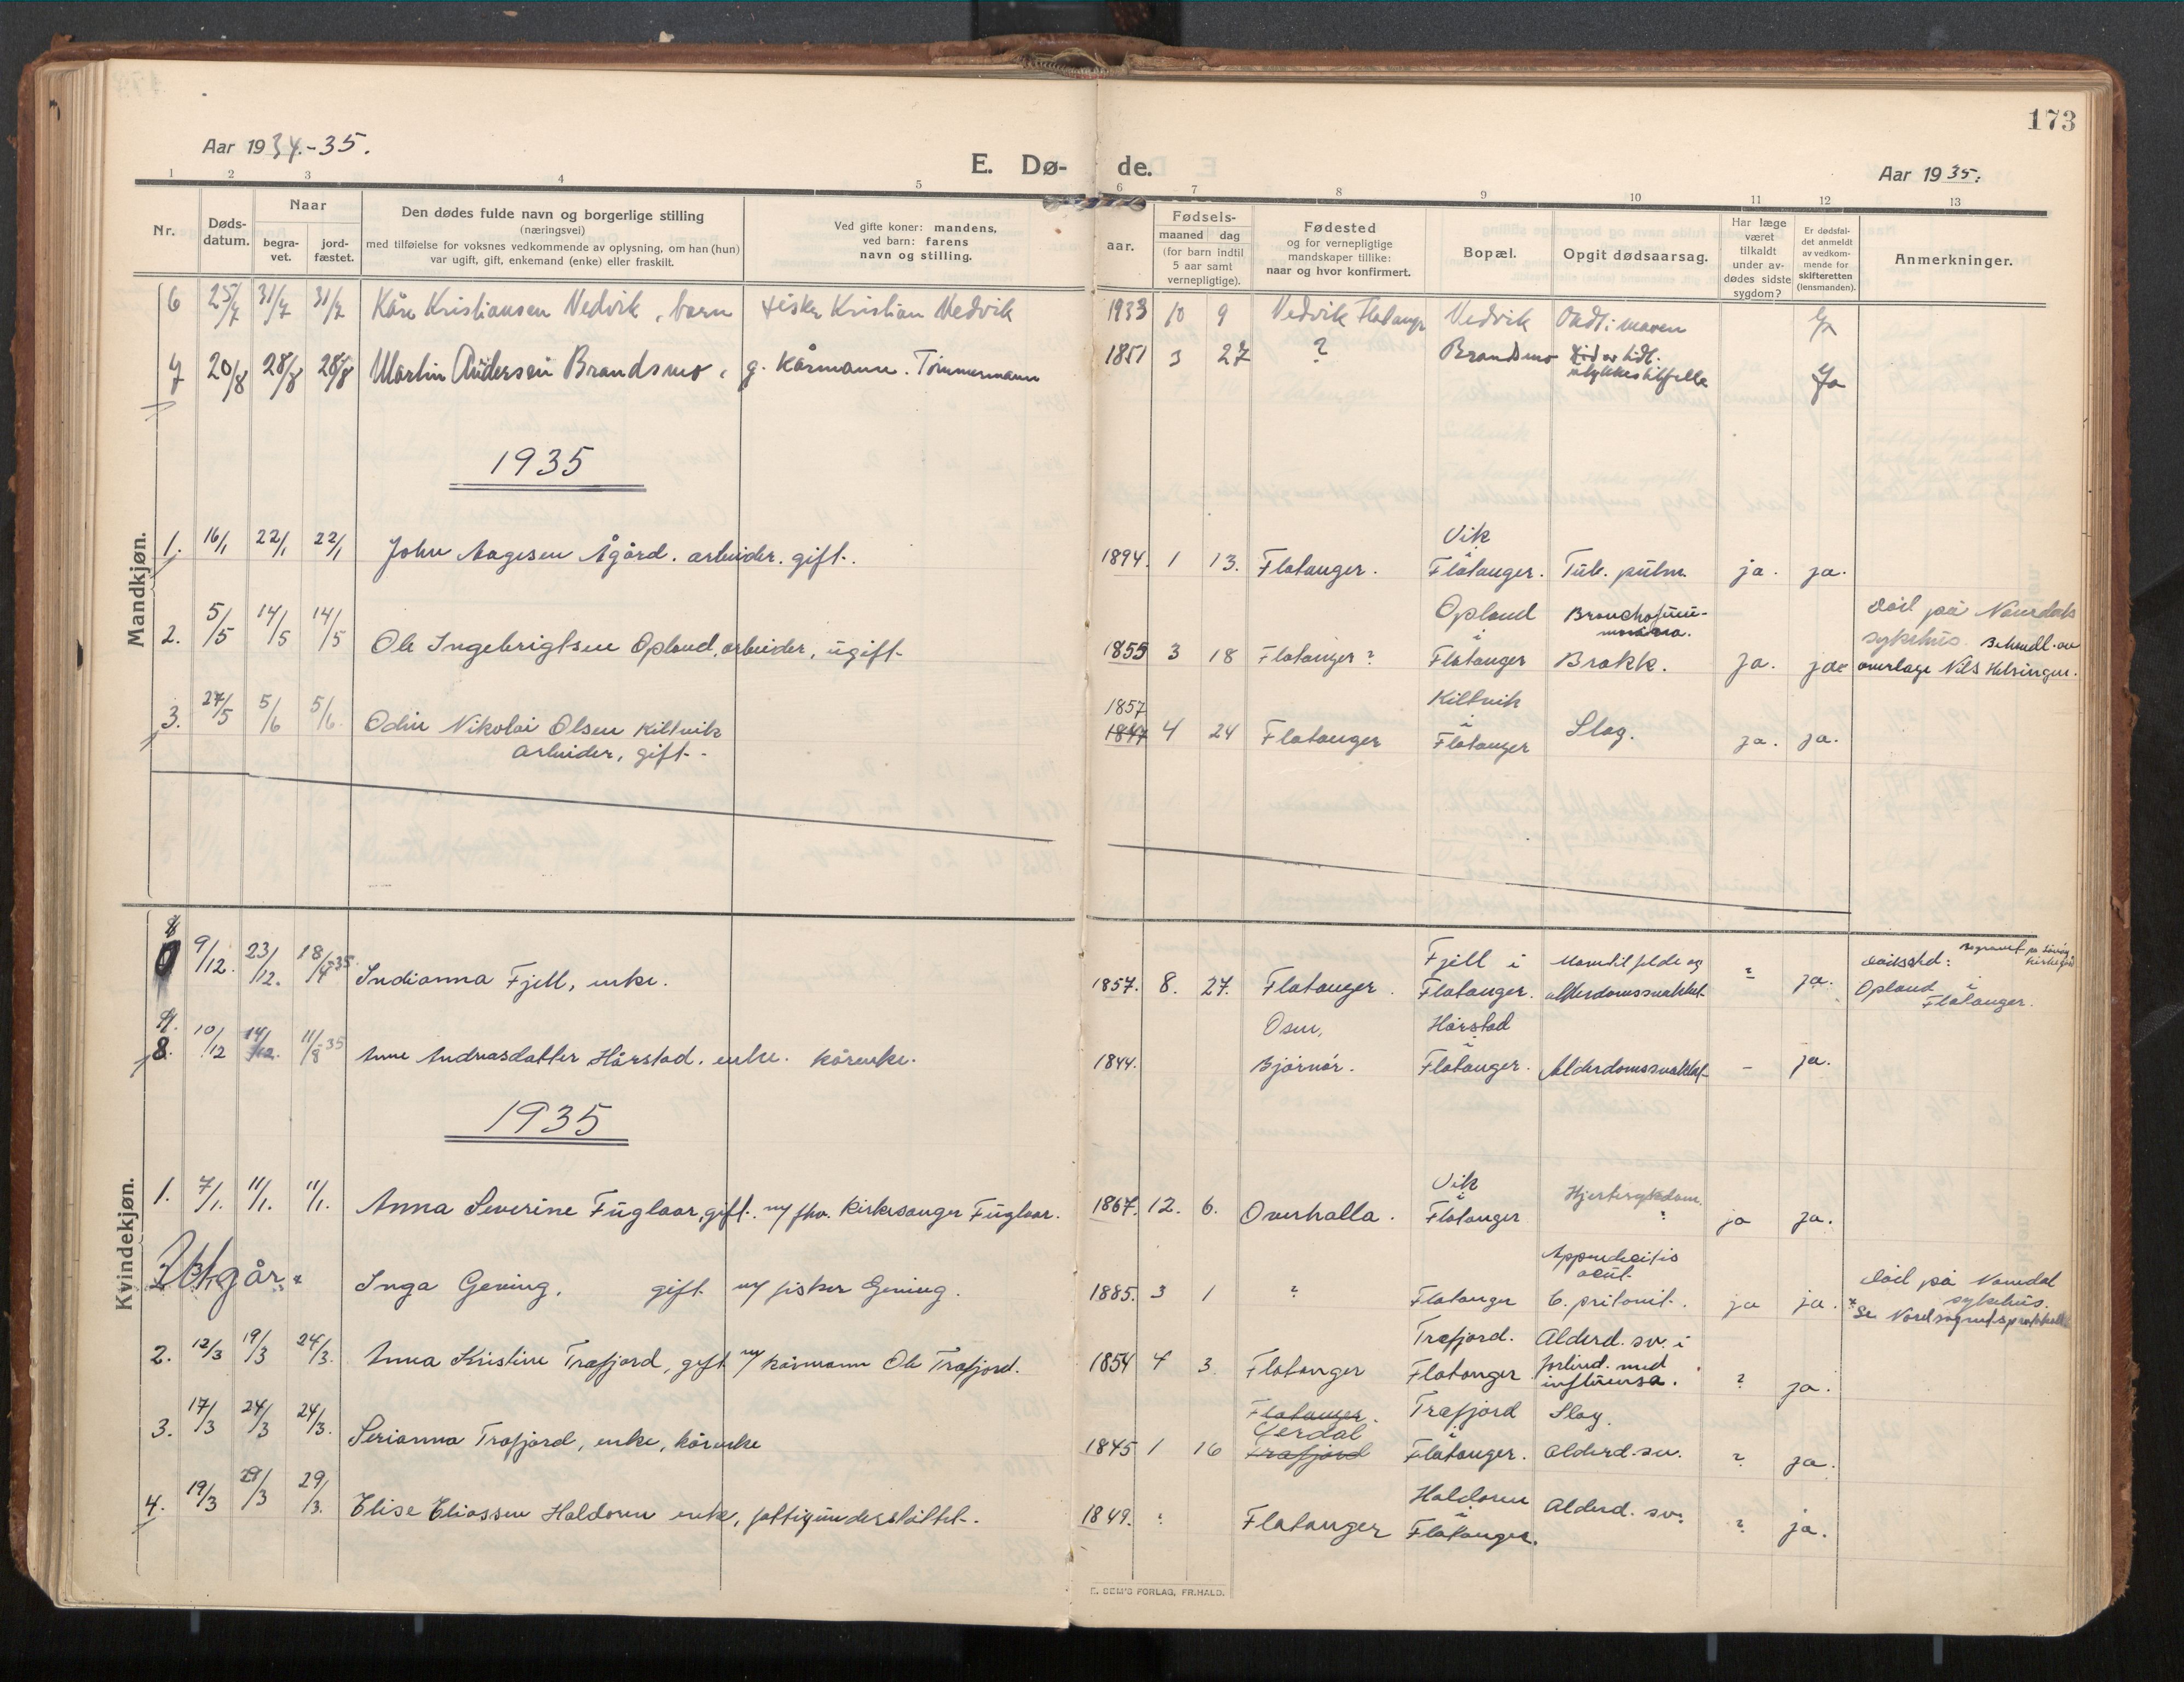 173
Aar 1934.-35.
E. Dø- de.
Aar 1935.
1 2 3 4 5 6 7 8 9 10 11 12 13
Nr.
Døds-
datum.
Naar
begra-
vet.
jord-
fæstet.
Den dødes fulde navn og borgerlige stilling
(næringsvei)
med tilføielse for voksnes vedkommende av oplysning, om han (hun)
var ugift, gift, enkemand (enke) eller fraskilt.
Ved gifte koner: mandens,
ved barn: farens
navn og stilling.
aar.
Fødsels-
maaned dag
(for barn indtil
5 aar samt
vernepligtige).
Fødested
og for vernepligtige
mandskaper tillike:
naar og hvor konfirmert.
Bopæl.
Opgit dødsaarsag.
Har læge
været
tilkaldt
under av-
dødes sidste
sygdom?
Er dødsfal-
det anmeldt
av vedkom-
mende for
skifteretten
(lensmanden).
Anmerkninger.
Mandkjøn.
6 25/7 31/7 31/7 Kåre Kristiansen Vedvik, barn fisker Kristian Vedvik 1933 10 9 Vedvik Flatanger Vedvik maven
7 20/8 28/8 28/8 Martin Andersen Brandsmo, g. Kårmann. Tømmermann 1851 3 27 ? Brandsmo ulykkestilfelle Ja
1935
1. 16/1 22/1 22/1 John Aagesen Ågård. arbeider. gift. 1894. 1 13. Flatanger. Vik i Flatanger. Tub. pulm. ja. ja.
2. 5/5 14/5 14/5 Ole Ingebrigtsen Opland, arbeider, ugift. 1855 3 18 Flatanger? Opland i Flatanger Bronchopneu-
monia.
Brokk. ja. ja Død på Namdals
sykehus. Behandl. av
overlæge Nils Helsingen.
3. 27/5 5/6 5/6 Odin Nikolai Olsen Kiltvik
arbeider, gift. 1857 1847 4 24 Flatanger Kiltvik i Flatanger Slag. ja. ja.
Kvindekjøn.
8 9/12. 23/12. 18/4-35. Indianna Fjell, enke. 1857. 8. 27. Flatanger. Fjell i Flatanger. alderdomssvakhet ? ja. Dødssted: Begravet på
kirkegård
Opland i Flatanger.
9. 8. 10/12 14/12. 11/8-35 Anne Andreasdatter Hårstad. enke. kårenke. 1844. Osen, Bjørnør. Hårstad i Flatanger. Alderdomssvakhet - ja.
1935
1. 7/1. 11/1. 11/1. Anna Severine Fuglaar, gift. m/ fhv. Kirkesanger Fuglaar. 1867. 12. 6. Overhalla. Vik i Flatanger Hjertesykdom. ? ja ja.
Utgår. Inga Gening, gift m/ fisker Gening. 1885. 3 1 ? Flatanger Appendicitis
acut.
C. pritonit. ja ja. ? Død på Namdal
sykehus.
Se
2. 12/3 19/3 24/3. Anna Kristine Træfjord, gift m/ kårmann Ole Træfjord. 1854 4 3. Flatanger Træfjord. Flatanger Alderd. sv. i
forbind. med
influensa. ? ja.
3. 17/3 24/3 24/3. Serianna Træfjord, enke, kårenke 1845 1 16 Flatanger. Gerdal Træfjord Træfjord i Flatanger. Slag.
Alderd. sv. ? ja.
4. 19/3 29/3 29/3. Elise Eliassen Haldoren enke, fattigunderstøttet. 1849. ? Flatanger Haldoren i Flatanger. Alderd. sv. ? ja.
E. SEM'S FORLAG, FR.HALD.